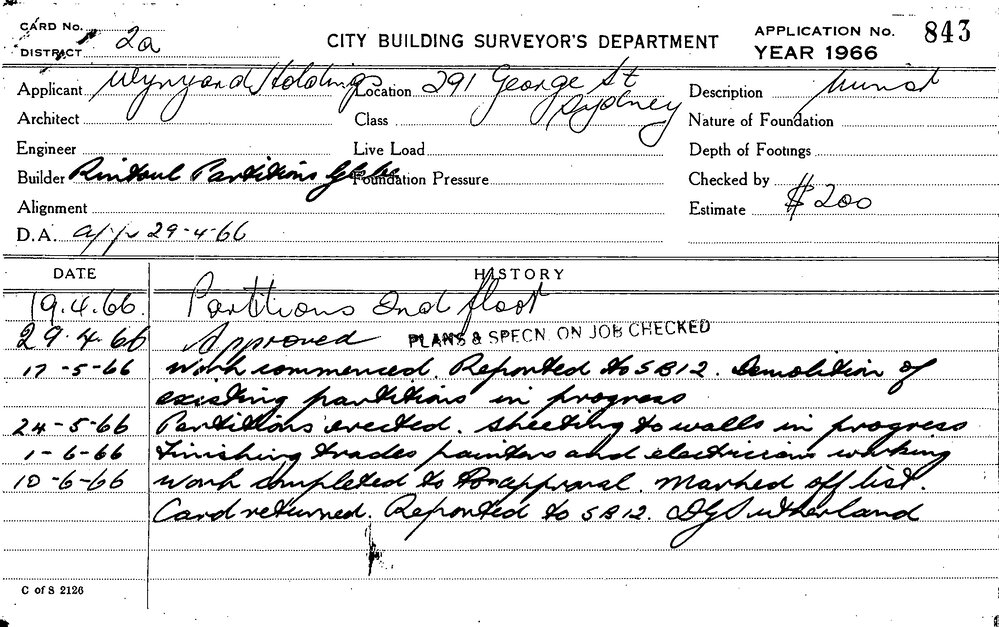 CARD No.
DISTRICT 2a
CITY BUILDING SURVEYOR'S DEPARTMENT
APPLICATION No. 843
YEAR 1966
Applicant Wynyard Holdings Location 291 George St Description
Architect Class Sydney Nature of Foundation
Engineer Live Load Depth of Footings
Builder Rintoul Partitions Foundation Pressure Checked by
Alignment Estimate $200
D.A. app 29-4-66
DATE HISTORY
19.4.66. Partitions 2nd floor
29.4.66 Approved PLANS & SPECN. ON JOB CHECKED
17-5-66 Work commenced. Reported to SB12. Demolition of
existing partitions in progress
24-5-66 Partitions erected. Sheeting to walls in progress
1-6-66 Finishing trades painters and electricians working
10-6-66 Work completed to approval. Marked off list.
Card returned. Reported to SB12. DG Sutherland
C of S 2126